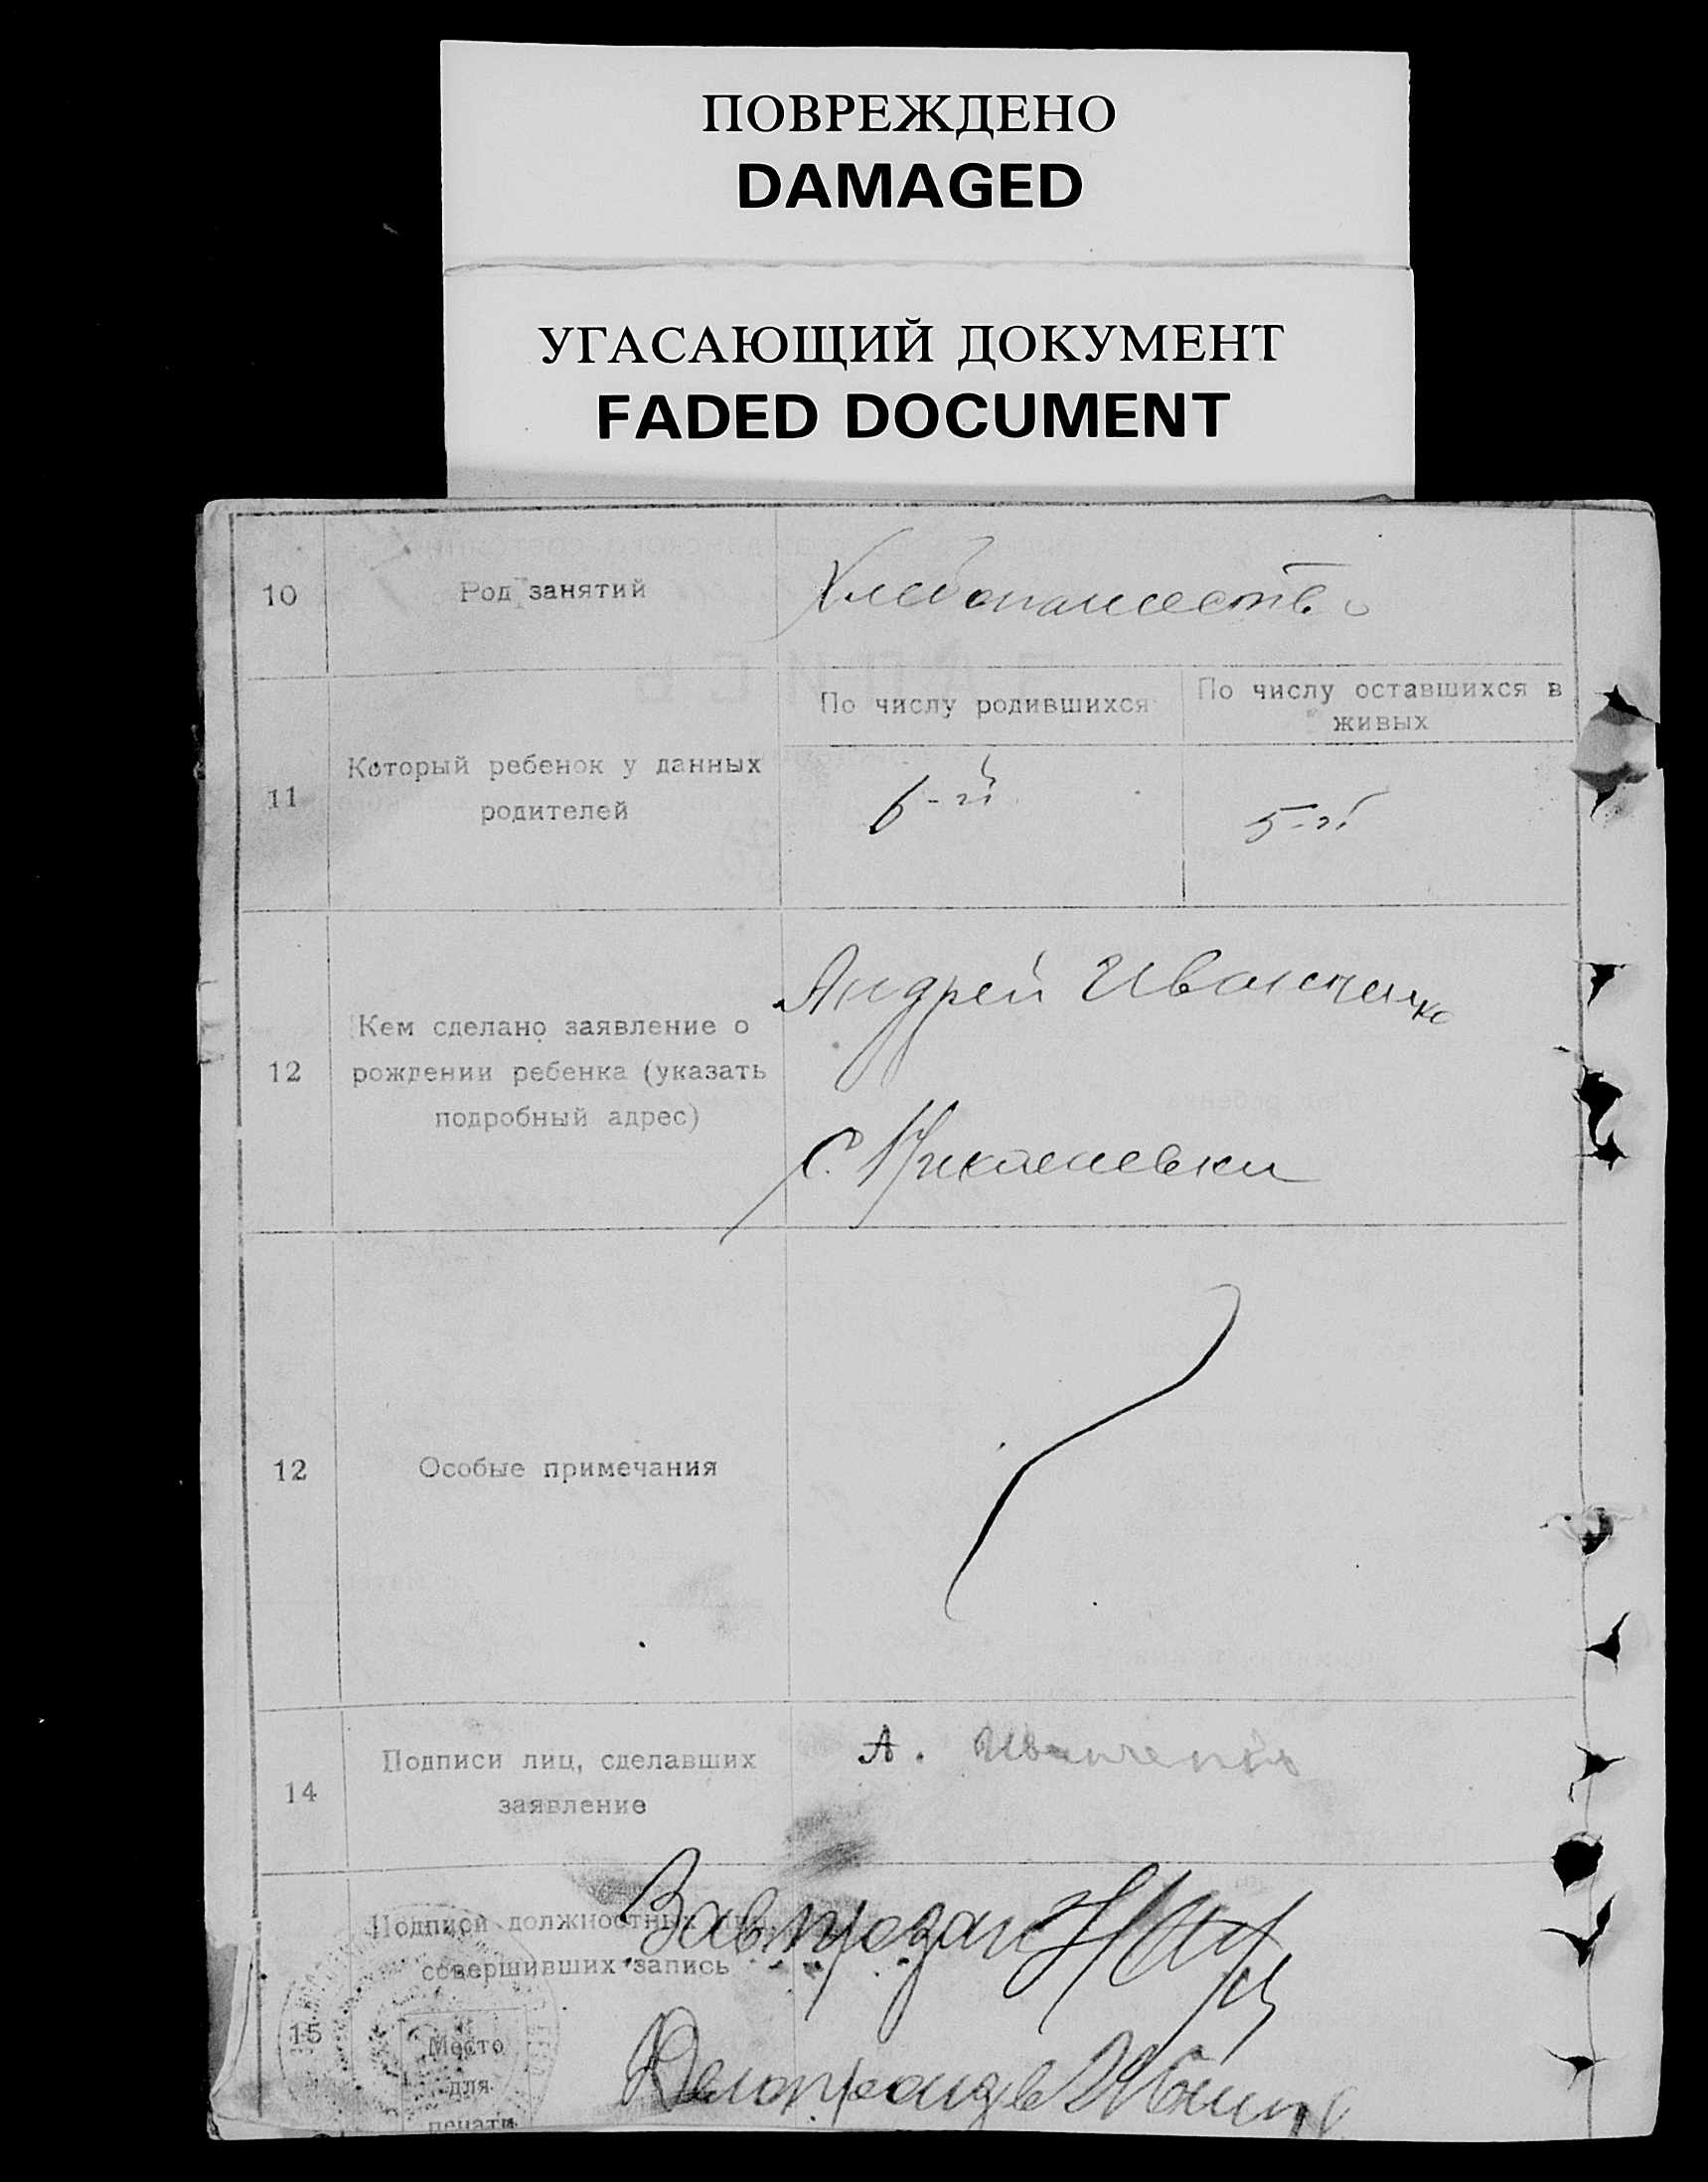 ПОВРЕЖДЕНО
DAMAGED
УГАСАЮЩИЙ ДОКУМЕНТ
FADED DOCUMENT
10
Род занятий
Хлебопашество
11
Который ребенок у данных
родителей
По числу родившихся
По числу оставшихся в
живых
6-й
5-й
12
Кем сделано заявление о
рождении ребенка (указать
подробный адрес)
Андрей Иванченко
с. Николаевки
12
Особые примечания
14
Подписи лиц, сделавших
заявление
А. Иванченко
15
Подписи должностных лиц,
совершивших запись
Место
для
печати
Делопроизв